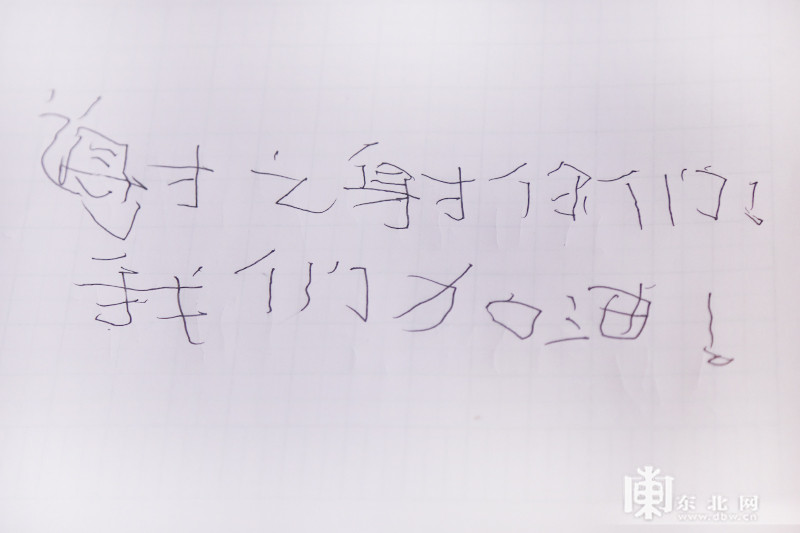 谢谢你们!
我们加油!
东北网
www.dbw.cn